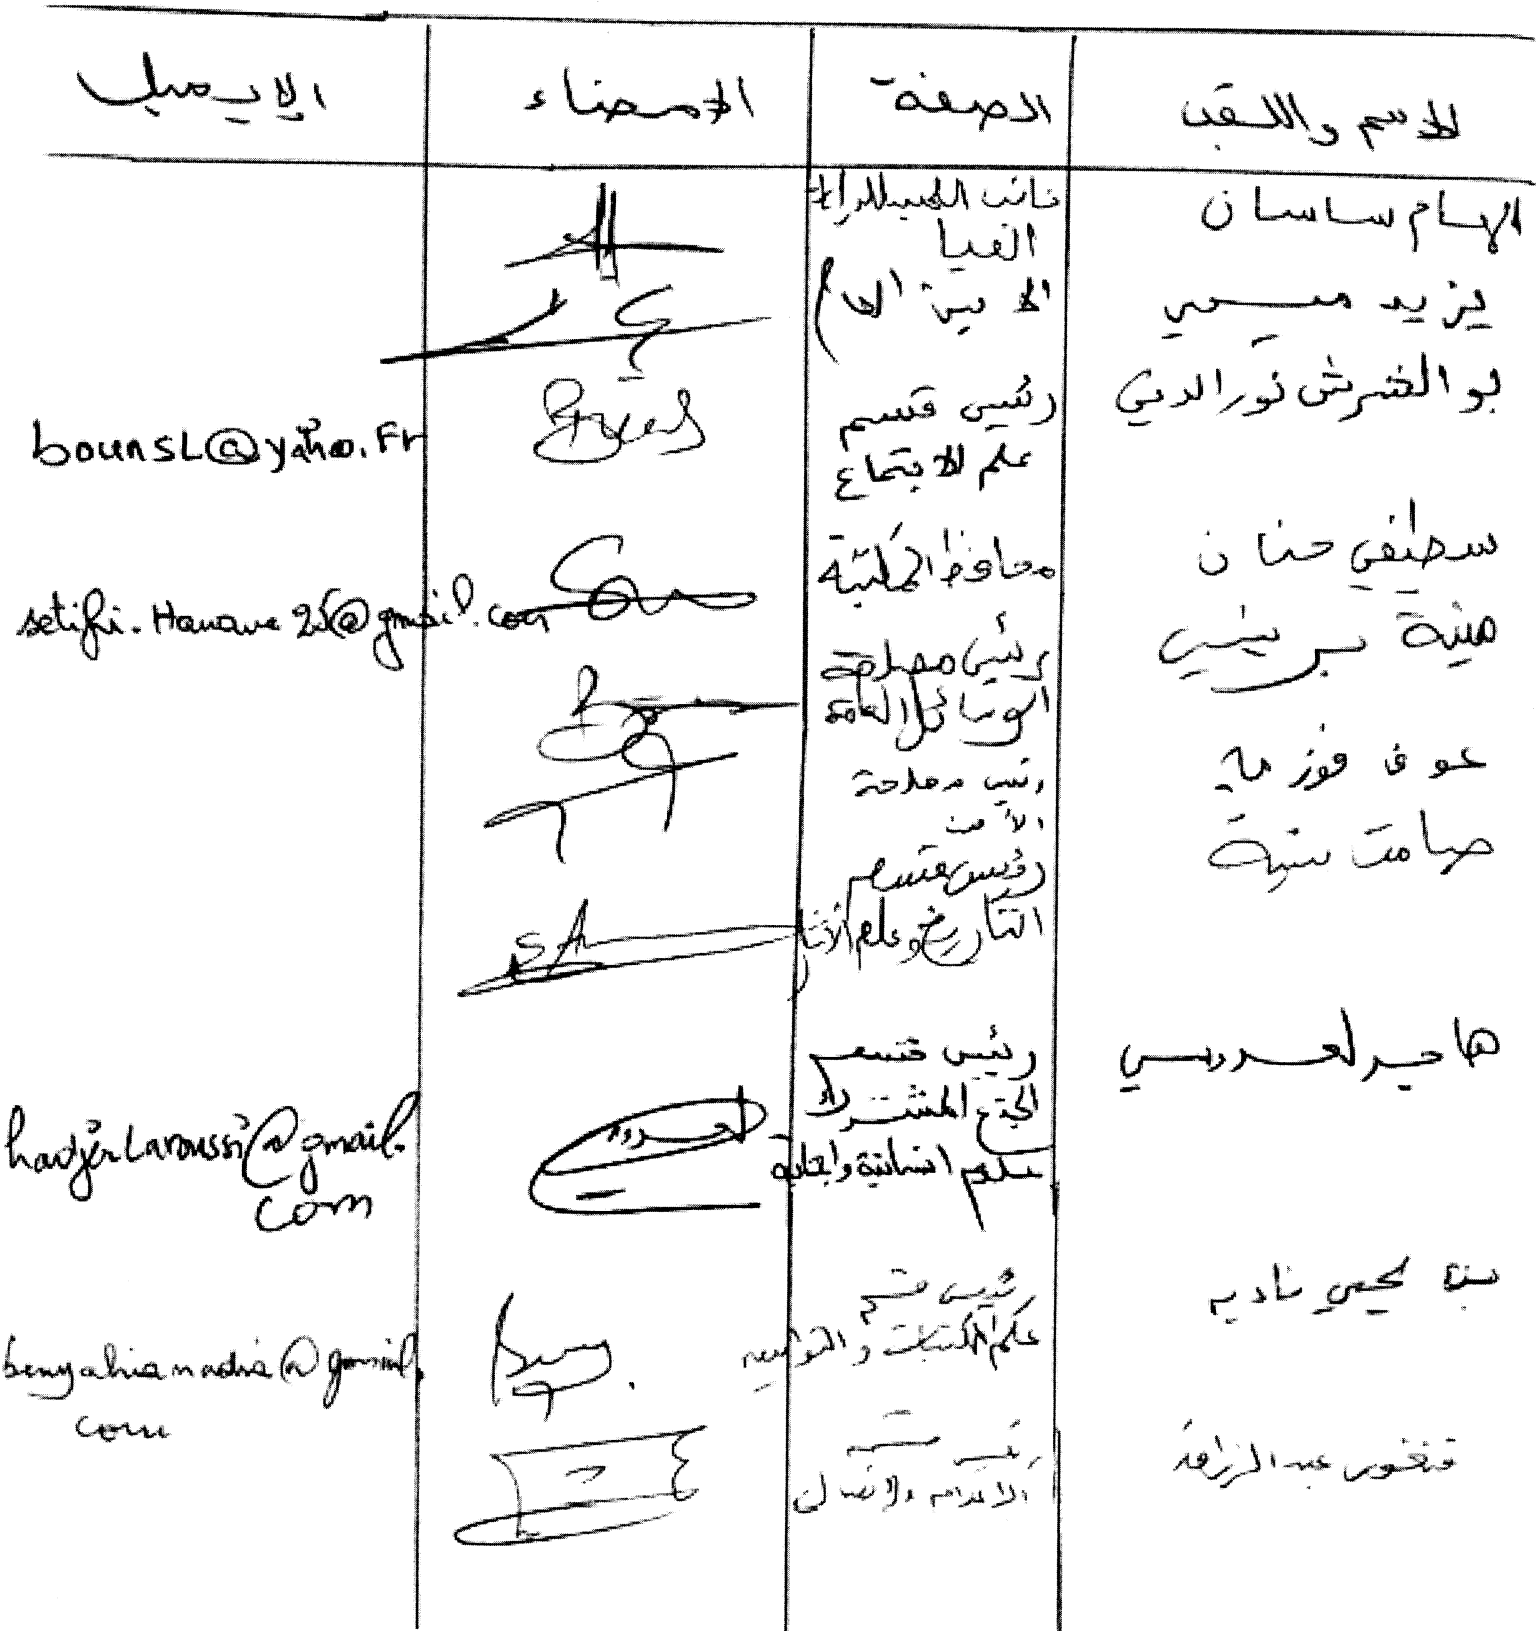 الاسم واللقب الصفة الامضاء الايميل
الهام ساسان نائب العميد للدراسات
يزيد ميسمي الامين العام
بوالشرش نورالدين رئيس قسم
علم الاجتماع bounsL@yahoo.Fr
سطيفي حنان محافظ المكتبة setifi.Hanane25@gmail.com
هنية رئيس مصلحة
الوسائل العامة
عوف فوزية رئيس مصلحة
الأمن
صامت رئيس قسم
التاريخ وعلم الآثار
هاجر لعروسي رئيس قسم
الجذع المشترك hadjerlaroussi@gmail.
علوم انسانية واجتماعية com
بن يحيى نادية رئيس قسم
علم المكتبات والتوثيق benyahianadia@gmail.
com
عبد الرزاق رئيس قسم
الاعلام والاتصال